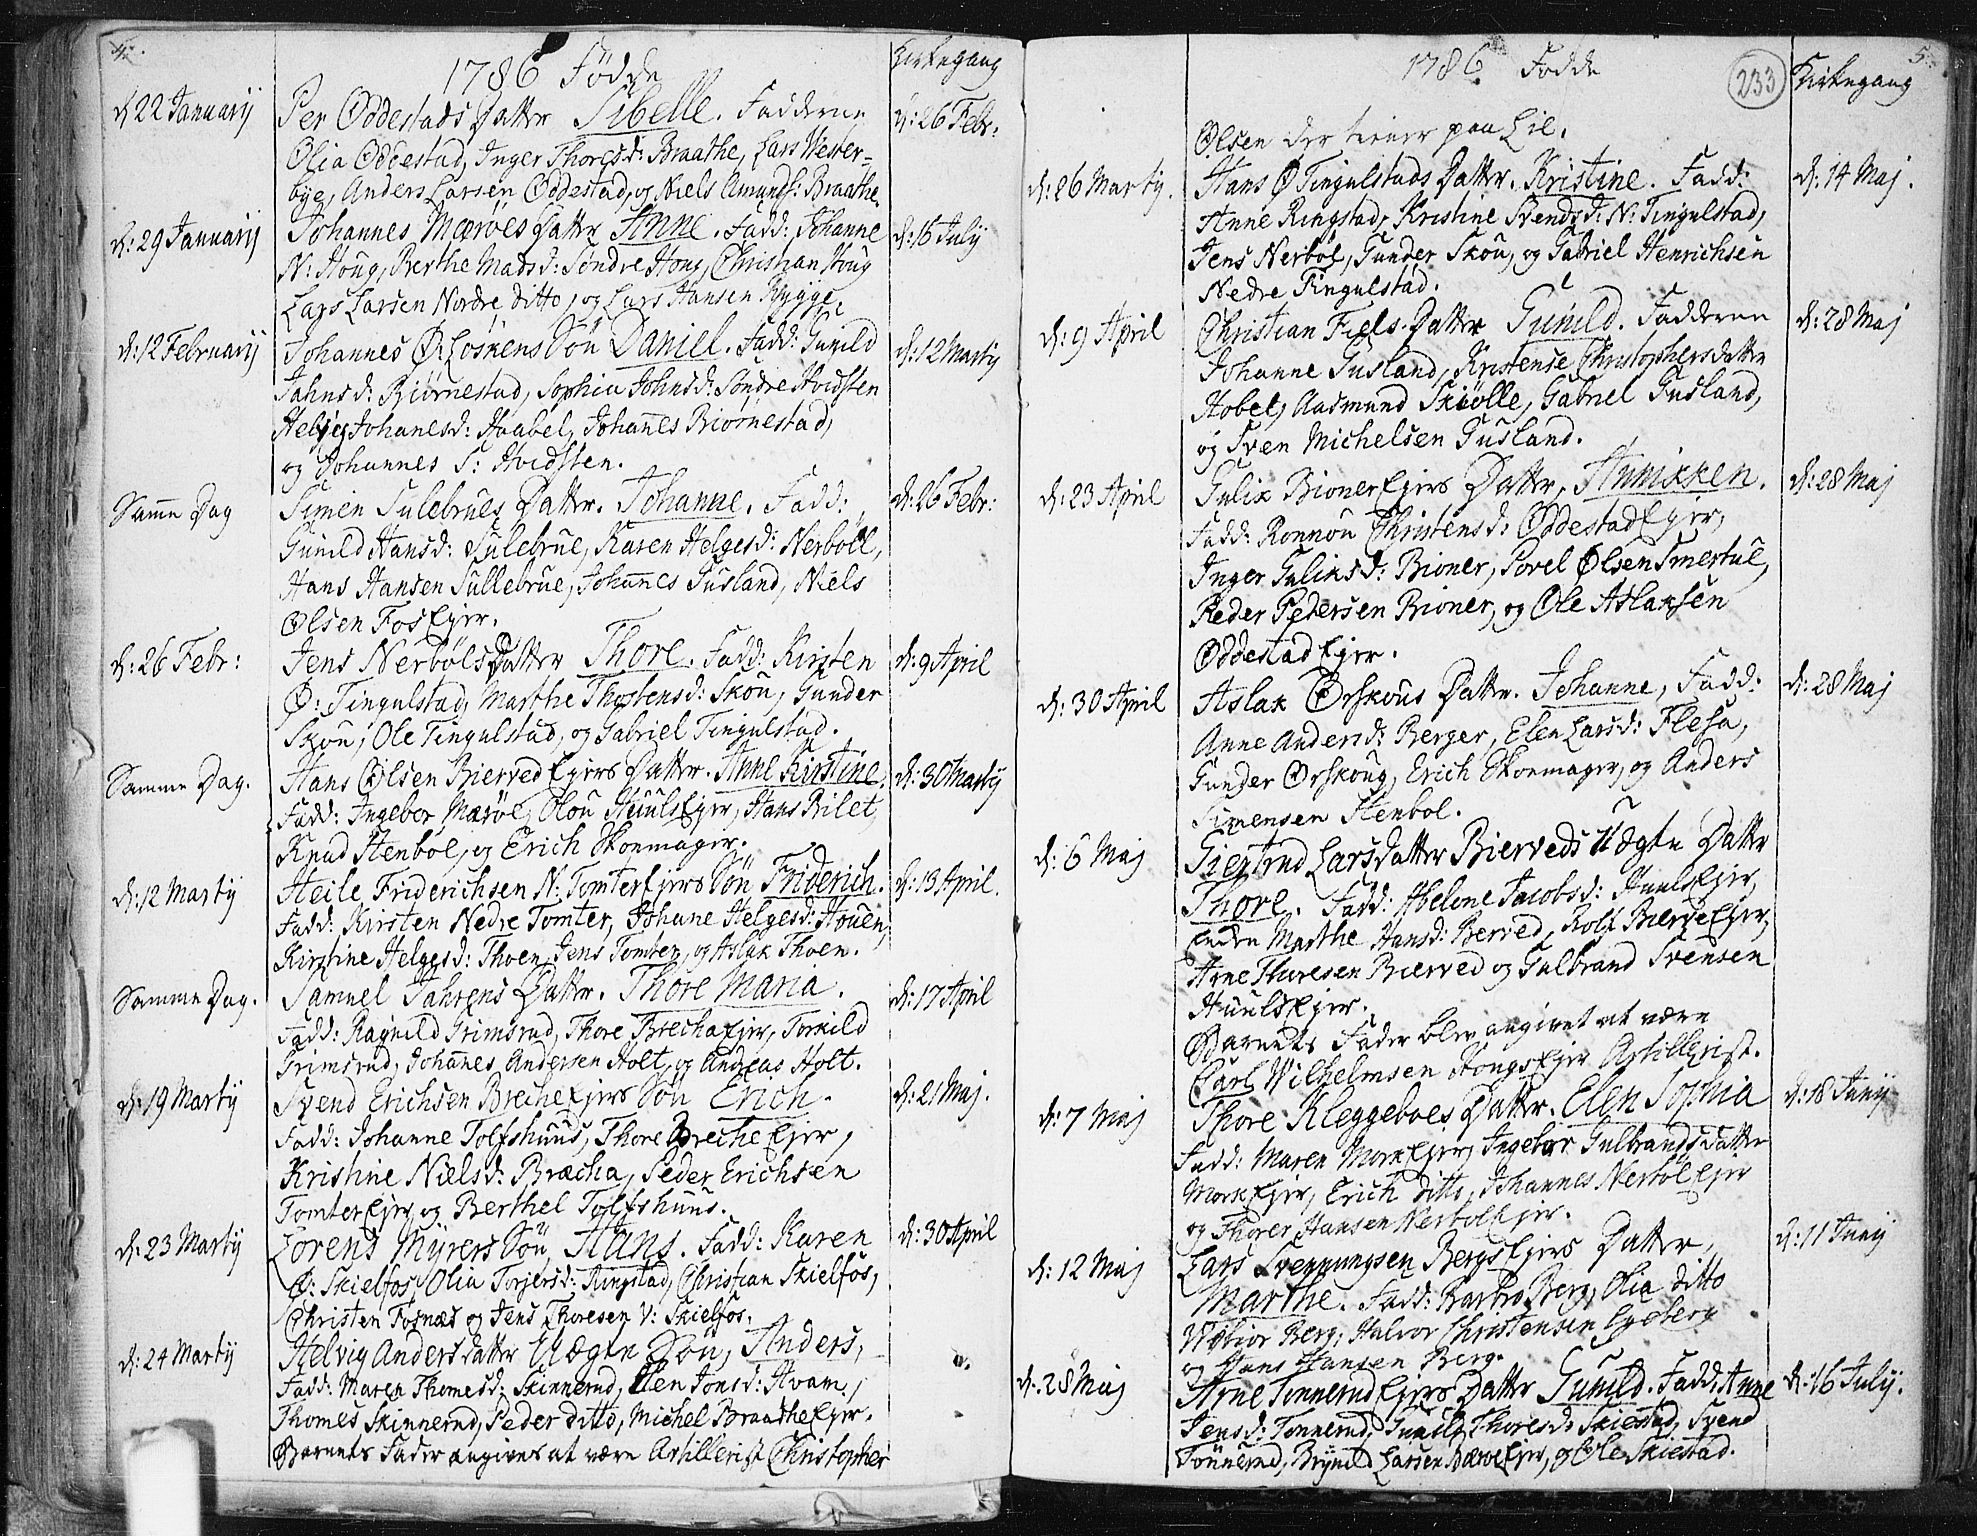 4.
1786 Fødde
Kirkegang
d: 22 Januarij
Per Oddestads Datter Sibelle. Fadderne
d: 26 Febr:
Olia Oddestad, Inger Thoresd: Braathe, Lars Wester=
bye, Anders Larsen Oddestad, og Niels Amunds: Braathe.
d: 29 Januarij
Johannes Mæröes Datter Anne. Fadd: Johanne
d: 16 July
N: Houg, Berthe Madsd: Søndre Houg, Christian Houg
Lars Larsen Nordre ditto, og Lars Hansen Rygge.
d: 12 Februarij
Johannes Ø: Löskens Sön Daniel. Fadd: Gunild
d: 12 Martij
Jahnsd: Biörnestad, Sophia Johnsd: Søndre Hvidsten
Helje Johanesd: Haabel, Johannes Biörnestad,
og Johannes S: Hvidsten.
Samme Dag
Simen Sulebrues Datter. Johanne. Fadd:
d: 26 Febr:
Gunild Hansd: Sulebrue, Karen Helgesd: Nerböll,
Hans Hansen Sullebrue, Johannes Gusland, Niels
Olsen Fos Ejer.
d: 26 Febr:
Jens Nerböls Datter Thore. Fadd: Kirsten
d: 9 April
Ø: Tingulstad, Marthe Thostensd: Skou, Gunder
Skou, Ole Tingulstad, og Gabriel Tingulstad.
Samme Dag.
Hans Olsen Bierved Ejers Datter. Anne Kirstine.
d: 30 Martij
Fadd: Ingebor Mæröe, Olou Huuls Ejer, Hans Rilet,
Knud Stenböl, og Erich Skoemager.
d: 12 Martij
Heile Friderichsen N: Tomter Ejers Sön Friderich.
d: 13 April.
Fadd: Kirsten Nedre Tomter, Johane Helgesd: Houen,
Kirstine Helgesd: Thoen, Jens Tomter, og Aslak Thoen.
Samme Dag.
Samuel Jahrens Datter. Thore Maria.
d: 17 April
Fadd: Ragnild Grimsrud, Thore Brecha Ejer, Torkild
Grimsrud, Johannes Andersen Holt, og Andreas Holt.
d: 19 Martij
Svend Erichsen Breche Ejers Sön Erich.
d: 21 Maj.
Fadd: Johanne Tolfshuus, Thore Breche Ejer,
Kristine Nielsd: Bræcha, Peder Erichsen
Tomter Ejer og Berthel Tolfshuus.
d: 23 Martij
Lorens Myrers Sön, Hans. Fadd: Karen
d: 30 April
Ø: Skielfos, Olia Torjersd: Ringstad, Christian Skielfos,
Christen Fosnæs og Jens Thoresen V: Skielfos.
d: 24 Martij
Helvig Anders datter Uægte Sön, Anders,
Fadd: Maren Thomesd: Skinnerud, Elen Jonsd: Hvam,
Thomes Skinnerud, Peder ditto, Michel Braathe Ejer.
Barnets Fader angives at være Artillerist Christopher
1786 Fødde
233
Kirkegang
5.
Olsen der tiener paa Lie.
d: 26 Martij.
Hans Ø Tingulstads Datter. Kristine. Fadd:
d: 14 Maj.
Anne Ringstad, Kristine Svendsd: N: Tingulstad,
Jens Nerböl, Gunder Skou, og Gabriel Henrichsen
Nedre Tingulstad.
d: 9 April
Christian Fiels Datter Gunild. Fadderne
d: 28 Maj
Johanne Gusland, Kristense Christophersdatter
Hobel, Aasmund Skiölle, Gabriel Gusland,
og Sven Michelsen Gusland.
d: 23 April
Gulik Bioner Ejers Datter, Annikken.
d: 28 Maj
Fadd: Ronnou Christensd: Oddestad Ejer,
Inger Guliksd: Bioner, Povel Olsen Smertue,
Peder Pedersen Bioner, og Ole Aslaksen
Oddestad Ejer.
d: 30 April
Aslak Orskous Datter. Johanne, Fadd:
d: 28 Maj
Anne Andersd: Berger, Elen Larsd: Flesa,
Gunder Orskoug, Erich Skoemager, og Anders
Simensen Stenbol.
d: 6 Maj
Giertrud Larsdatter Bierveds Uægte Datter
Thore. Fadd: Abelone Jacobsd: Huuls Ejer,
Marthe Hansd: Berved, Rolf Bierve Ejer,
Arne Thoresen Bierved og Gulbrand Svensen
Huuls Ejer.
Barnets Fader blev angivet at være
Carl Wilhelmsen Hougs Ejer Artillerist.
d: 7 Maj
Thore Kleggeboes Datter. Elen Sophia
d: 18 Junij
Fadd: Maren Mork Ejer, Ingebor Gulbrandsdatter
Mork Ejer, Erich ditto, Johannes Nerböl Ejer
og Thorer Hansen Nerbol Ejer.
d: 12 Maj
Lars Svennungsen Bergs Ejers Datter,
d: 11 Junij
Marthe. Fadd: Barbro Berg, Olia ditto
Wetior Berg, Halvor Christensen Egeberg
og Hans Hansen Berg.
d: 28 Maj
Arne Tonnerud Ejers Datter Gunild. Fadd: Anne
d: 16 July.
Jensd: Tonnerud, Gunild Thoresd: Skiestad, Svend
Tönnerud, Brynild Larsen Nærve Ejer, og Ole Skiestad.